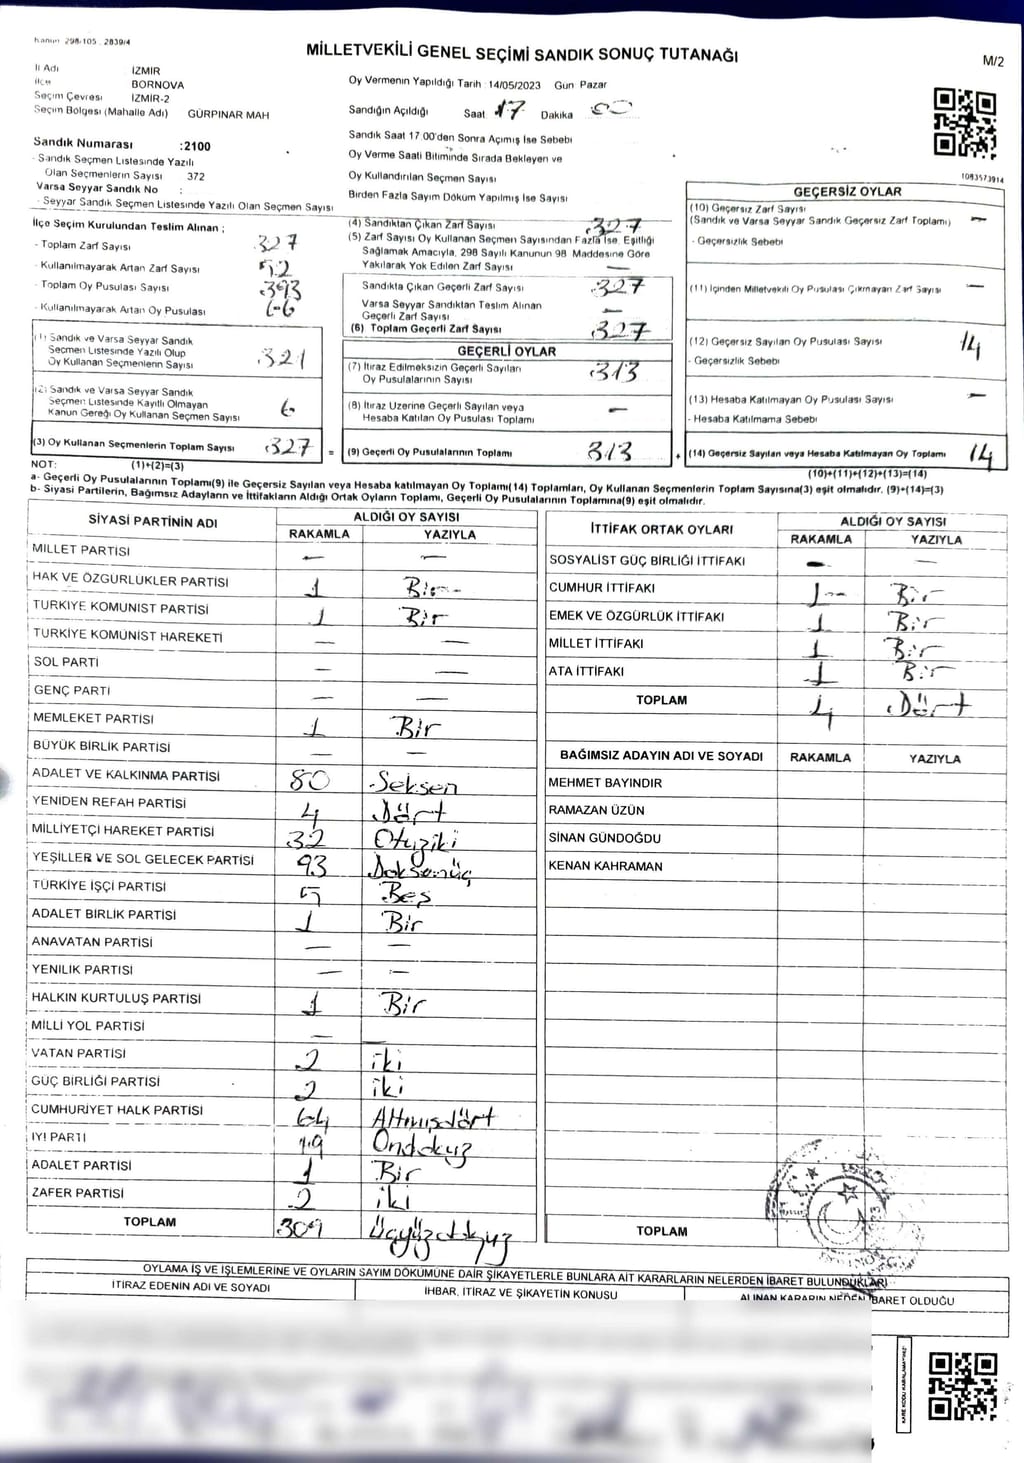 Kanun 298-105, 2839/4
MİLLETVEKİLİ GENEL SEÇİMİ SANDIK SONUÇ TUTANAĞI
M/2
İl Adı İZMİR
İlçe BORNOVA
Seçim Çevresi İZMİR-2
Seçim Bölgesi (Mahalle Adı) GÜRPINAR MAH
Oy Vermenin Yapıldığı Tarih : 14/05/2023 Gun Pazar
Sandığın Açıldığı Saat 17 Dakika 00
Sandık Saat 17 00'den Sonra Açımış İse Sebebi
Oy Verme Saati Bitiminde Sırada Bekleyen ve
Oy Kullandırılan Seçmen Sayısı
Birden Fazla Sayım Döküm Yapılmış İse Sayısı
1083573914
Sandık Numarası :2100
- Sandık Seçmen Listesinde Yazılı
Olan Seçmenlerin Sayısı 372
Varsa Seyyar Sandık No :
- Seyyar Sandık Seçmen Listesinde Yazılı Olan Seçmen Sayısı
İlçe Seçim Kurulundan Teslim Alınan ;
- Toplam Zarf Sayısı 327
- Kullanılmayarak Artan Zarf Sayısı 52
- Toplam Oy Pusulası Sayısı 393
- Kullanılmayarak Artan Oy Pusulası 66
(1) Sandık ve Varsa Seyyar Sandık
Seçmen Listesinde Yazılı Olup
Oy Kullanan Seçmenlerin Sayısı 321
(2) Sandık ve Varsa Seyyar Sandık
Seçmen Listesinde Kayıtlı Olmayan
Kanun Gereği Oy Kullanan Seçmen Sayısı 6
(3) Oy Kullanan Seçmenlerin Toplam Sayısı 327 =
(4) Sandıktan Çıkan Zarf Sayısı 327
(5) Zarf Sayısı Oy Kullanan Seçmen Sayısından Fazla İse, Eşitliği
Sağlamak Amacıyla, 298 Sayılı Kanunun 98 Maddesine Göre
Yakılarak Yok Edilen Zarf Sayısı —
Sandıkta Çıkan Geçerli Zarf Sayısı 327
Varsa Seyyar Sandıktan Teslim Alınan
Geçerli Zarf Sayısı —
(6) Toplam Geçerli Zarf Sayısı 327
GEÇERLİ OYLAR
(7) İtiraz Edilmeksizin Geçerli Sayılan
Oy Pusulalarının Sayısı 313
(8) İtiraz Üzerine Geçerli Sayılan veya
Hesaba Katılan Oy Pusulası Toplamı —
(9) Geçerli Oy Pusulalarının Toplamı 313 +
GEÇERSİZ OYLAR
(10) Geçersiz Zarf Sayısı
(Sandık ve Varsa Seyyar Sandık Geçersiz Zarf Toplamı) —
- Geçersizlik Sebebi
(11) İçinden Milletvekili Oy Pusulası Çıkmayan Zarf Sayısı —
(12) Geçersiz Sayılan Oy Pusulası Sayısı 14
- Geçersizlik Sebebi
(13) Hesaba Katılmayan Oy Pusulası Sayısı —
- Hesaba Katılmama Sebebi
(14) Geçersiz Sayılan veya Hesaba Katılmayan Oy Toplamı 14
NOT: (1)+(2)=(3)
(10)+(11)+(12)+(13)=(14)
a- Geçerli Oy Pusulalarının Toplamı(9) ile Geçersiz Sayılan veya Hesaba katılmayan Oy Toplamı(14) Toplamları, Oy Kullanan Seçmenlerin Toplam Sayısına(3) eşit olmalıdır. (9)+(14)=(3)
b- Siyasi Partilerin, Bağımsız Adayların ve İttifakların Aldığı Ortak Oyların Toplamı, Geçerli Oy Pusulalarının Toplamına(9) eşit olmalıdır.
SİYASİ PARTİNİN ADI ALDIĞI OY SAYISI
RAKAMLA YAZIYLA
MİLLET PARTİSİ — —
HAK VE ÖZGÜRLÜKLER PARTİSİ 1 Bir
TÜRKİYE KOMÜNİST PARTİSİ 1 Bir
TÜRKİYE KOMÜNİST HAREKETİ — —
SOL PARTİ — —
GENÇ PARTİ — —
MEMLEKET PARTİSİ 1 Bir
BÜYÜK BİRLİK PARTİSİ — —
ADALET VE KALKINMA PARTİSİ 80 Seksen
YENİDEN REFAH PARTİSİ 4 Dört
MİLLİYETÇİ HAREKET PARTİSİ 32 Otuziki
YEŞİLLER VE SOL GELECEK PARTİSİ 93 Doksanüç
TÜRKİYE İŞÇİ PARTİSİ 5 Beş
ADALET BİRLİK PARTİSİ 1 Bir
ANAVATAN PARTİSİ — —
YENİLİK PARTİSİ — —
HALKIN KURTULUŞ PARTİSİ 1 Bir
MİLLİ YOL PARTİSİ — —
VATAN PARTİSİ 2 iki
GÜÇ BİRLİĞİ PARTİSİ 2 iki
CUMHURİYET HALK PARTİSİ 64 Altmışdört
İYİ PARTİ 19 Ondokuz
ADALET PARTİSİ 1 Bir
ZAFER PARTİSİ 2 iki
TOPLAM 309 Üçyüzdokuz
İTTİFAK ORTAK OYLARI ALDIĞI OY SAYISI
RAKAMLA YAZIYLA
SOSYALİST GÜÇ BİRLİĞİ İTTİFAKI — —
CUMHUR İTTİFAKI 1 Bir
EMEK VE ÖZGÜRLÜK İTTİFAKI 1 Bir
MİLLET İTTİFAKI 1 Bir
ATA İTTİFAKI 1 Bir
TOPLAM 4 Dört
BAĞIMSIZ ADAYIN ADI VE SOYADI RAKAMLA YAZIYLA
MEHMET BAYINDIR
RAMAZAN ÜZÜN
SİNAN GÜNDOĞDU
KENAN KAHRAMAN
TOPLAM
OYLAMA İŞ VE İŞLEMLERİNE VE OYLARIN SAYIM DÖKÜMÜNE DAİR ŞİKAYETLERLE BUNLARA AİT KARARLARIN NELERDEN İBARET BULUNDUKLARI
İTİRAZ EDENİN ADI VE SOYADI İHBAR, İTİRAZ VE ŞİKAYETİN KONUSU ALINAN KARARIN NEDEN İBARET OLDUĞU
KARE KODU KARALAMAYINIZ